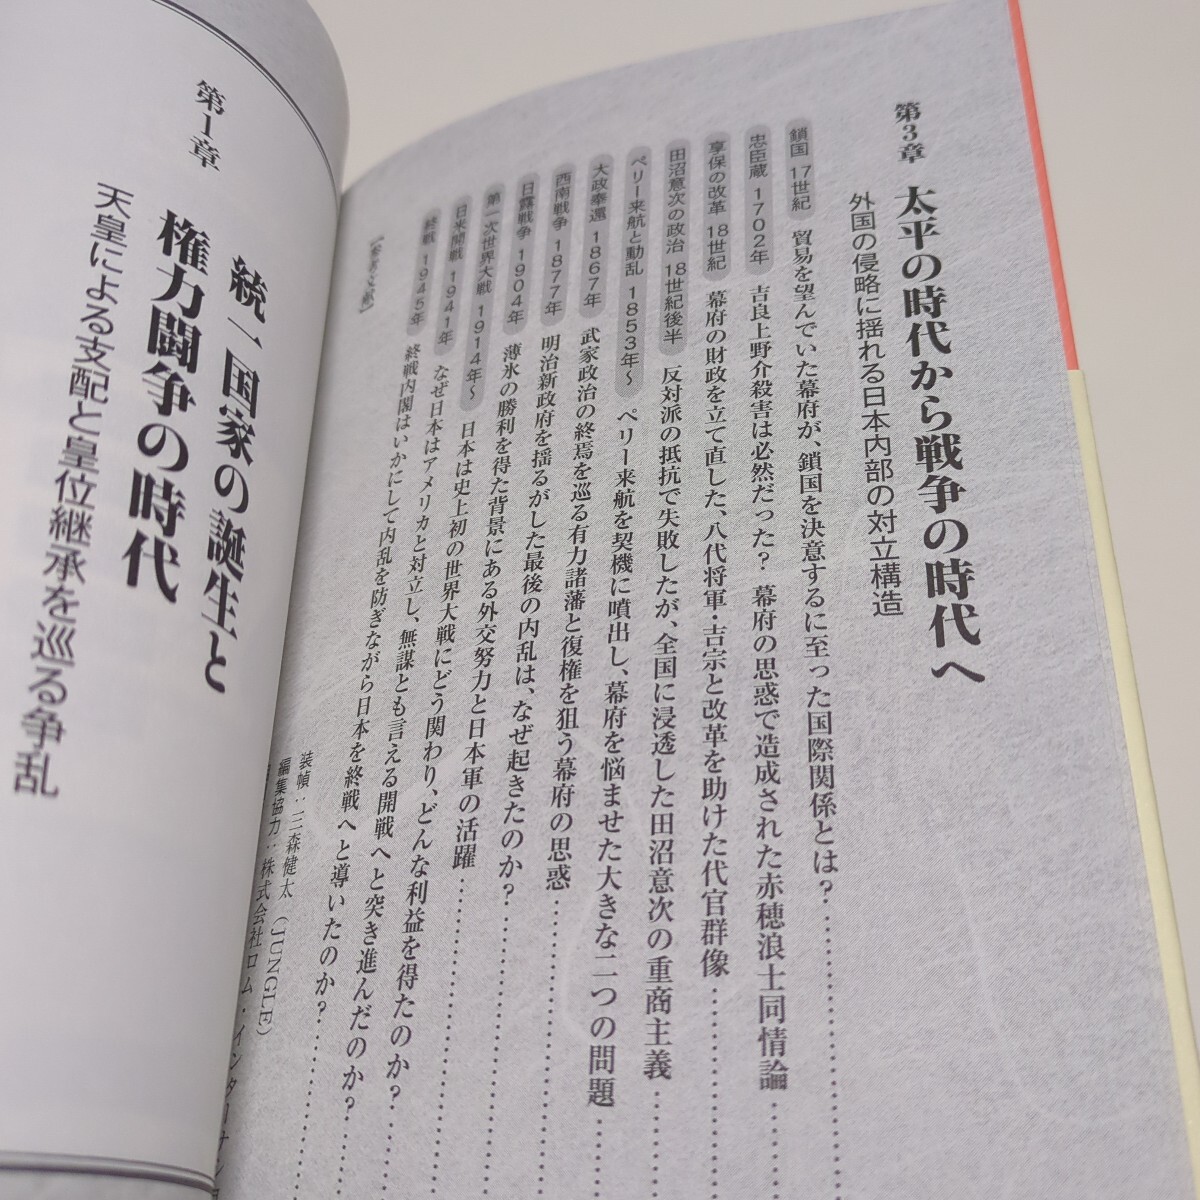 第3章 太平の時代から戦争の時代へ
外国の侵略に揺れる日本内部の対立構造
鎖国 17世紀 貿易を望んでいた幕府が、鎖国を決意するに至った国際関係とは?……………
忠臣蔵 1702年 吉良上野介殺害は必然だった? 幕府の思惑で造成された赤穂浪士同情論……
享保の改革 18世紀 幕府の財政を立て直した、八代将軍・吉宗と改革を助けた代官群像……………
田沼意次の政治 18世紀後半 反対派の抵抗で失敗したが、全国に浸透した田沼意次の重商主義……
ペリー来航と動乱 1853年〜 ペリー来航を契機に噴出し、幕府を悩ませた大きな二つの問題……
大政奉還 1867年 武家政治の終焉を巡る有力諸藩と復権を狙う幕府の思惑……………
西南戦争 1877年 明治新政府を揺るがした最後の内乱は、なぜ起きたのか?……………
日露戦争 1904年 薄氷の勝利を得た背景にある外交努力と日本軍の活躍……………
第一次世界大戦 1914年〜 日本は史上初の世界大戦にどう関わり、どんな利益を得たのか?……
日米開戦 1941年 なぜ日本はアメリカと対立し、無謀とも言える開戦へと突き進んだのか?……
終戦 1945年 終戦内閣はいかにして内乱を防ぎながら日本を終戦へと導いたのか?……………
【参考文献】
装幀:三森健太(JUNGLE)
編集協力:株式会社ロム・インターナ
第1章 統一国家の誕生と
権力闘争の時代
天皇による支配と皇位継承を巡る争乱